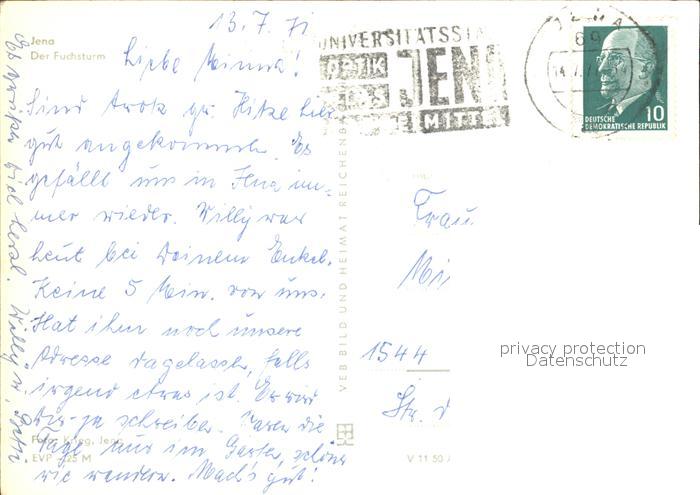 Jena
Der Fuchsturm
13.7.71
Liebe Minna!
Sind trotz gr. Hitze hier
gut angekommen. Es
gefällt uns in Jena im-
mer wieder. Willy war
heut bei Deinem Enkel.
Keine 5 Min. von uns.
Hat ihm noch unsere
Adresse dagelassen, falls
irgend etwas ist. Er wird
Dir ja schreiben. Waren die
Tage nur im Garten, schöner
wie wandern. Mach's gut!
Es grüßen viel herzl. Willy u.
Foto: Krieg, Jena
EVP 0,25 M
VEB BILD UND HEIMAT REICHENBA
V 11 50
UNIVERSITÄTSSTA
OPTIK
JENA
MITTE
JENA
69
14.7.7
DEUTSCHE
DEMOKRATISCHE REPUBLIK
10
Frau
Mi
1544
Str. d
privacy protection
Datenschutz